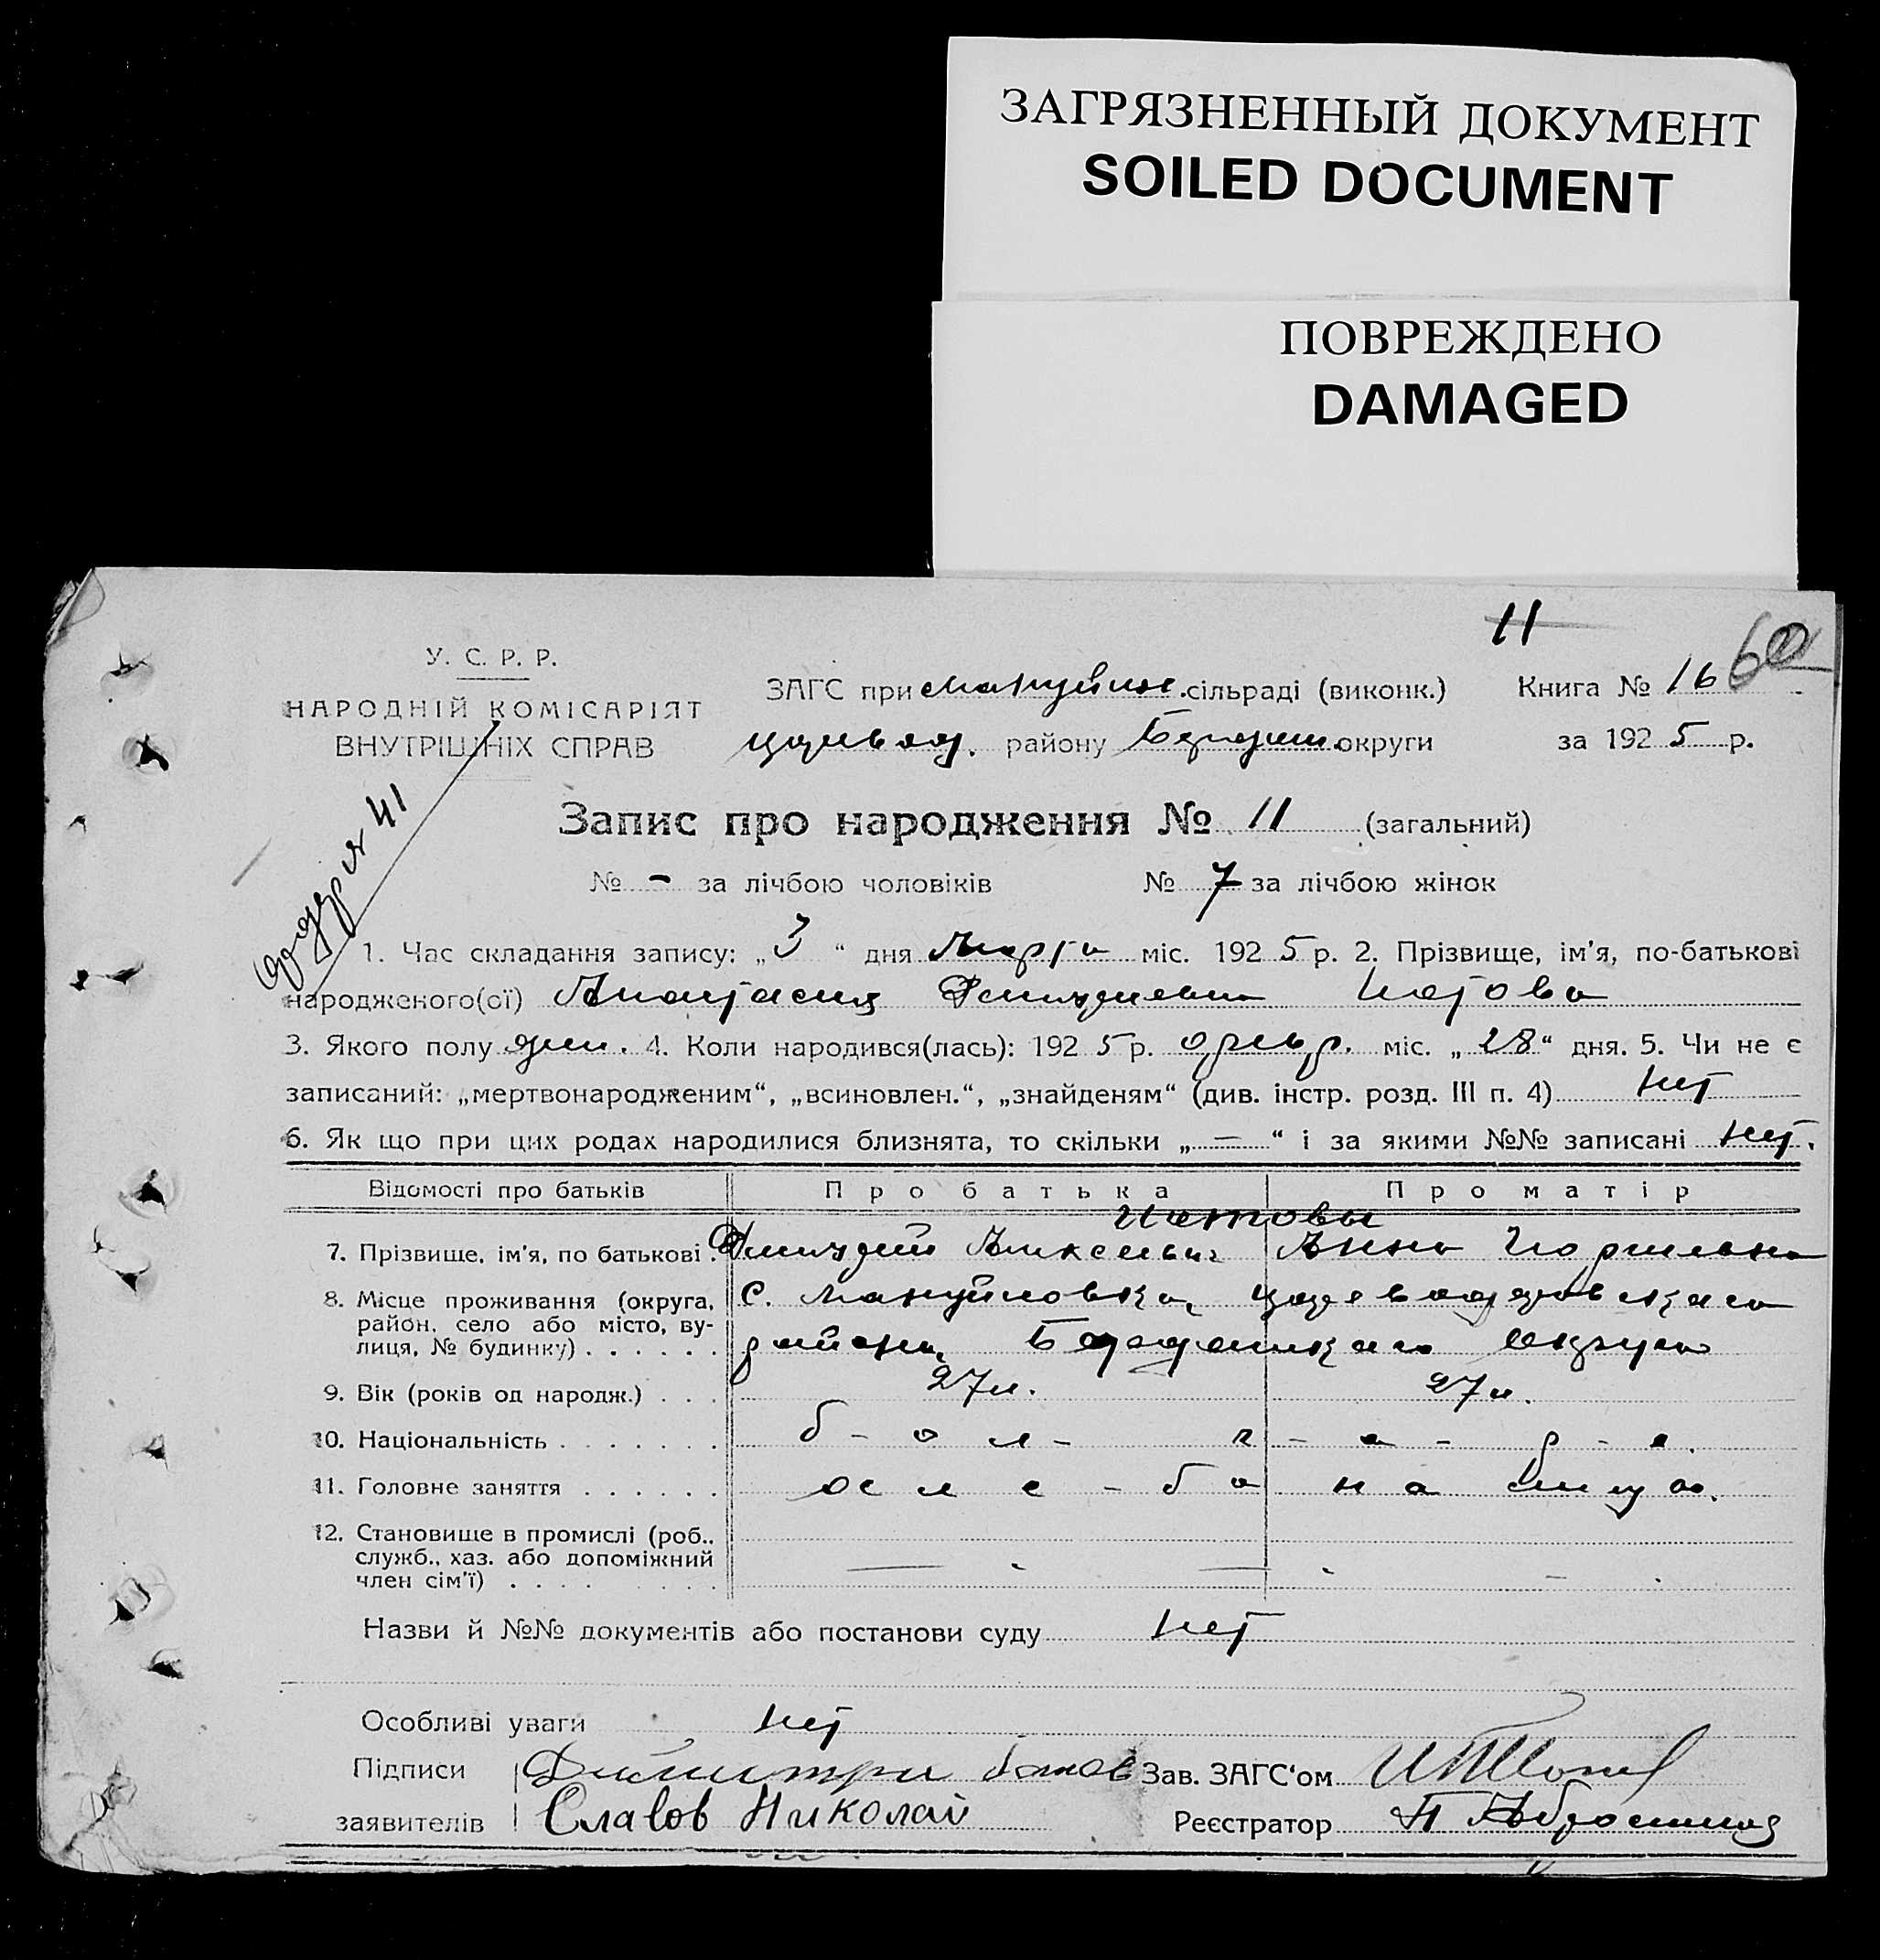 ЗАГРЯЗНЕННЫЙ ДОКУМЕНТ
SOILED DOCUMENT
ПОВРЕЖДЕНО
DAMAGED
11
У. С. Р. Р.
НАРОДНІЙ КОМІСАРІЯТ
ВНУТРІШНІХ СПРАВ
ЗАГС при Мануйлов. сільраді (виконк.) Книга № 16
району округи за 1925 р.
Запис про народження № 11 (загальний)
№ - за лічбою чоловіків № 7 за лічбою жінок
1. Час складання запису: „3“ дня Марта міс. 1925 р. 2. Прізвище, ім'я, по-батькові
народженого(ої) Анастасия Димитриевна
3. Якого полу жен. 4. Коли народився(лась): 1925 р. февр. міс. „28“ дня. 5. Чи не є
записаний: „мертвонародженим“, „всиновлен.“, „знайденям“ (див. інстр. розд. III п. 4) нет
6. Як що при цих родах народилися близнята, то скільки „—“ і за якими №№ записані нет.
Відомості про батьків Про батька Про матір
7. Прізвище, ім'я, по батькові . Димитрий Алексеевич Анна
8. Місце проживання (округа, район, село або місто, вулиця, № будинку) . . . . . . с. Мануйловка, Цареводаровскаго
района, Бердянскаго округа
9. Вік (років од народж.) . . . 27 л. 27 л.
10. Національність . . . . . . . б - о л - г - а - р - е.
11. Головне заняття . . . . . .
12. Становище в промислі (роб., служб., хаз. або допоміжний член сім'ї) . . . .
Назви й №№ документів або постанови суду нет
Особливі уваги нет
Підписи Димитри Зав. ЗАГС'ом
заявителів Славов Николай Реєстратор